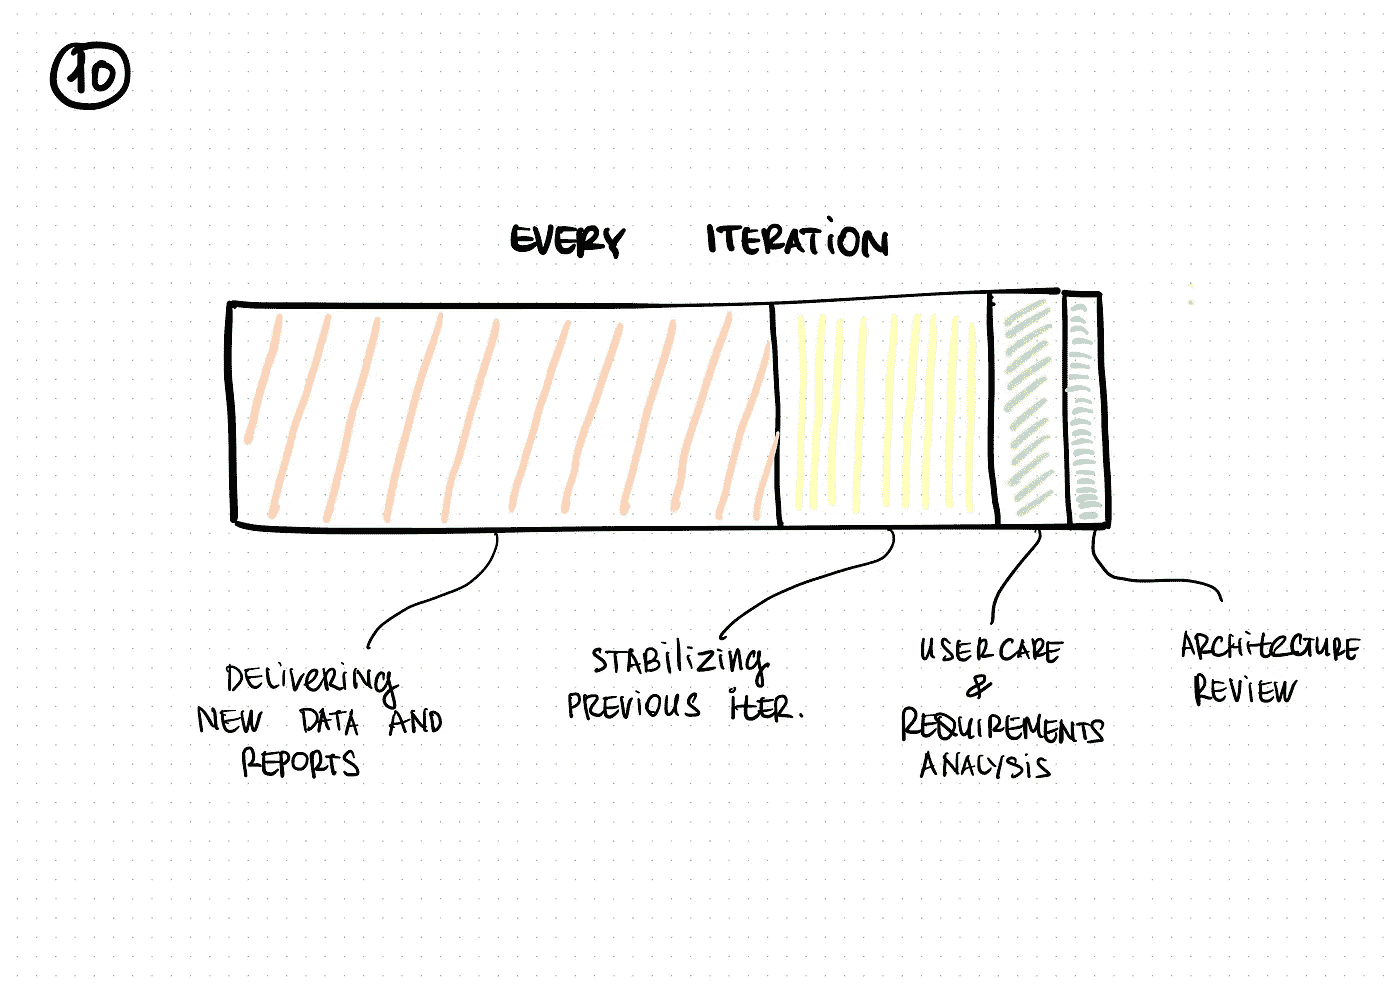 10
EVERY ITERATION
DELivERiNg
NEW DATA AND
REPORTS
STABilizing
PREViOUS iTER.
USER CARE
&
REQUIREMENTS
ANALYSiS
ARCHitECTURE
REVIEW